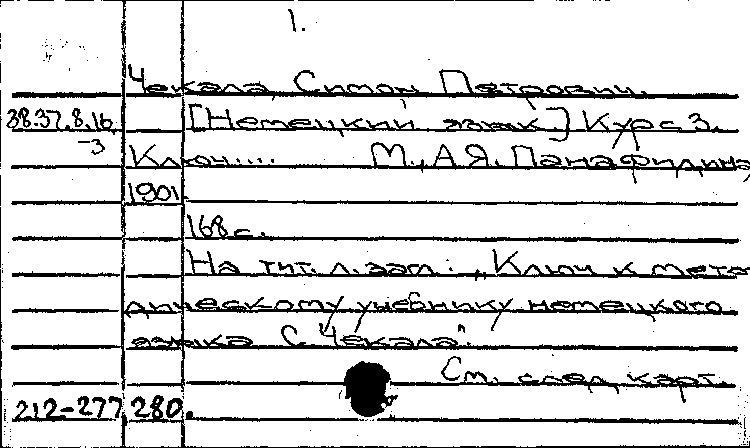 1.
Чекала, Симон Петрович.
38.37.8.16 [Немецкий язык.] Курс 3.
-3 Ключ.... М., А.Я. Панафидина,
1901.
168 с.
На тит. л. загл.: „Ключ к мето-
дическому учебнику немецкого
языка С. Чекала".
См. след. карт.
212-277 280.